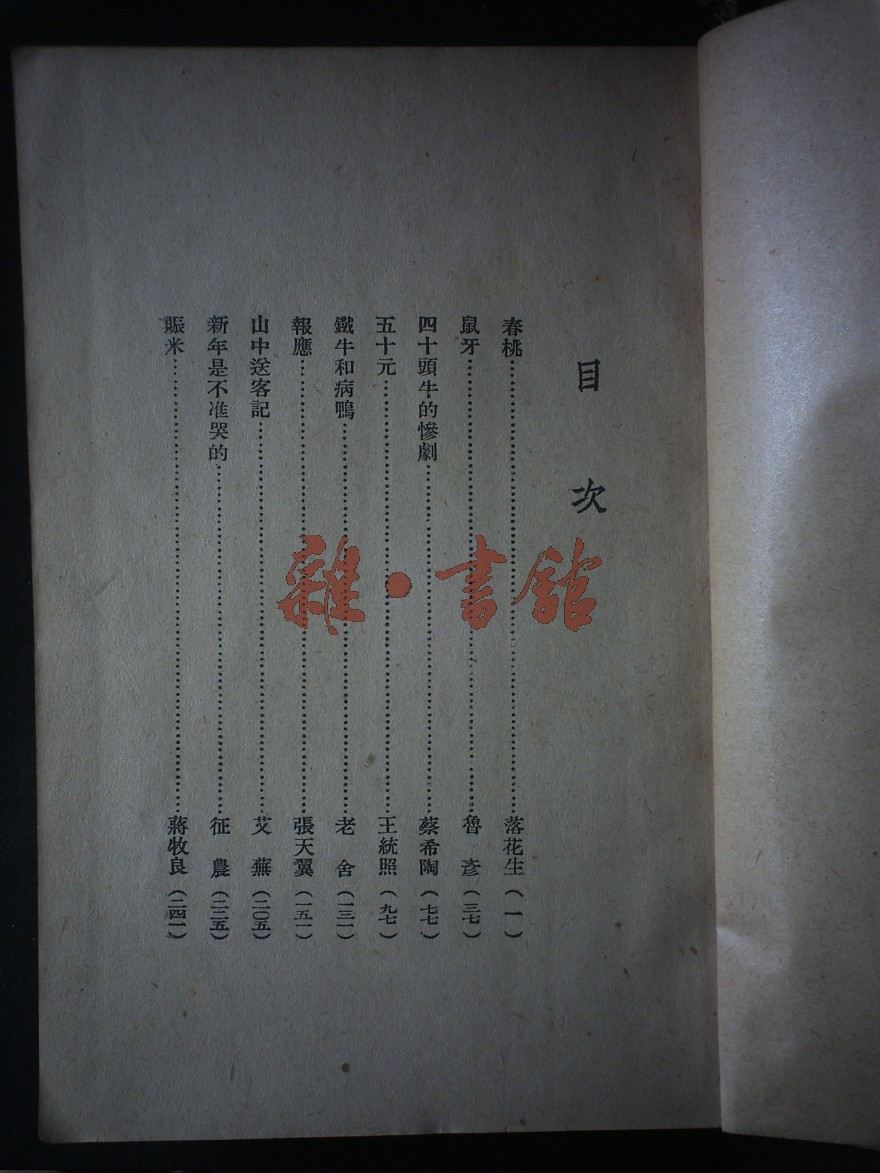 目次
春桃……落花生(一)
鼠牙……魯彥(三七)
四十頭牛的慘劇……蔡希陶(七七)
五十元……王統照(九七)
鐵牛和病鴨……老舍(一三一)
報應……張天翼(一五一)
山中送客記……艾蕪(二〇五)
新年是不准哭的……征農(二二五)
賑米……蔣牧良(二四一)
雜·書館